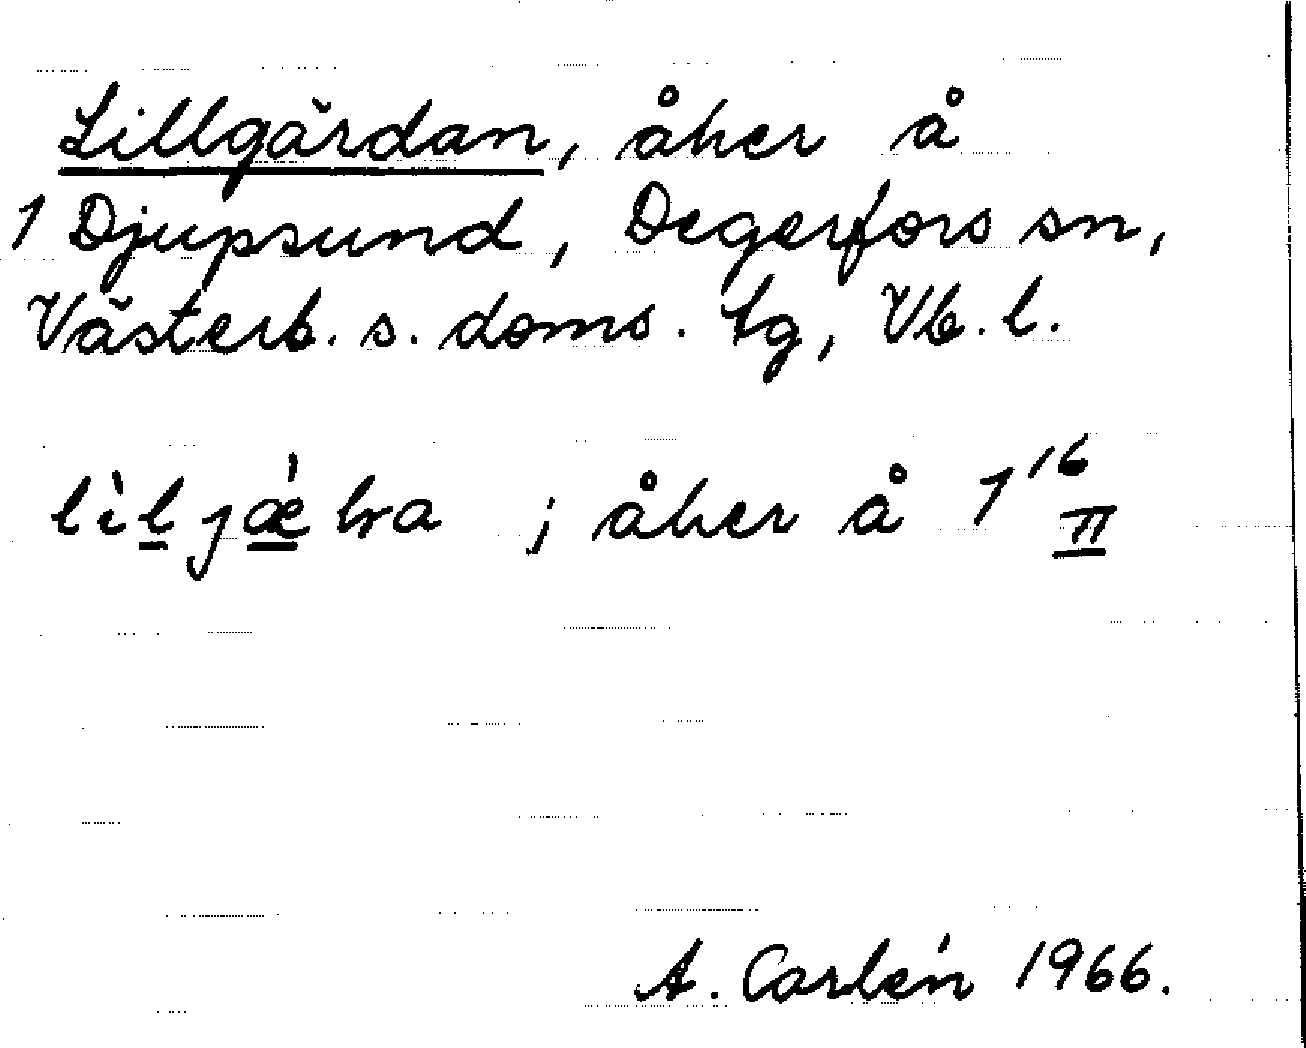 Lillgärdan, åker å
1 Djupsund, Degerfors sn,
Västerb. s. doms. tg, Vb. l.
; åker å 1 16 II
A. Carlén 1966.